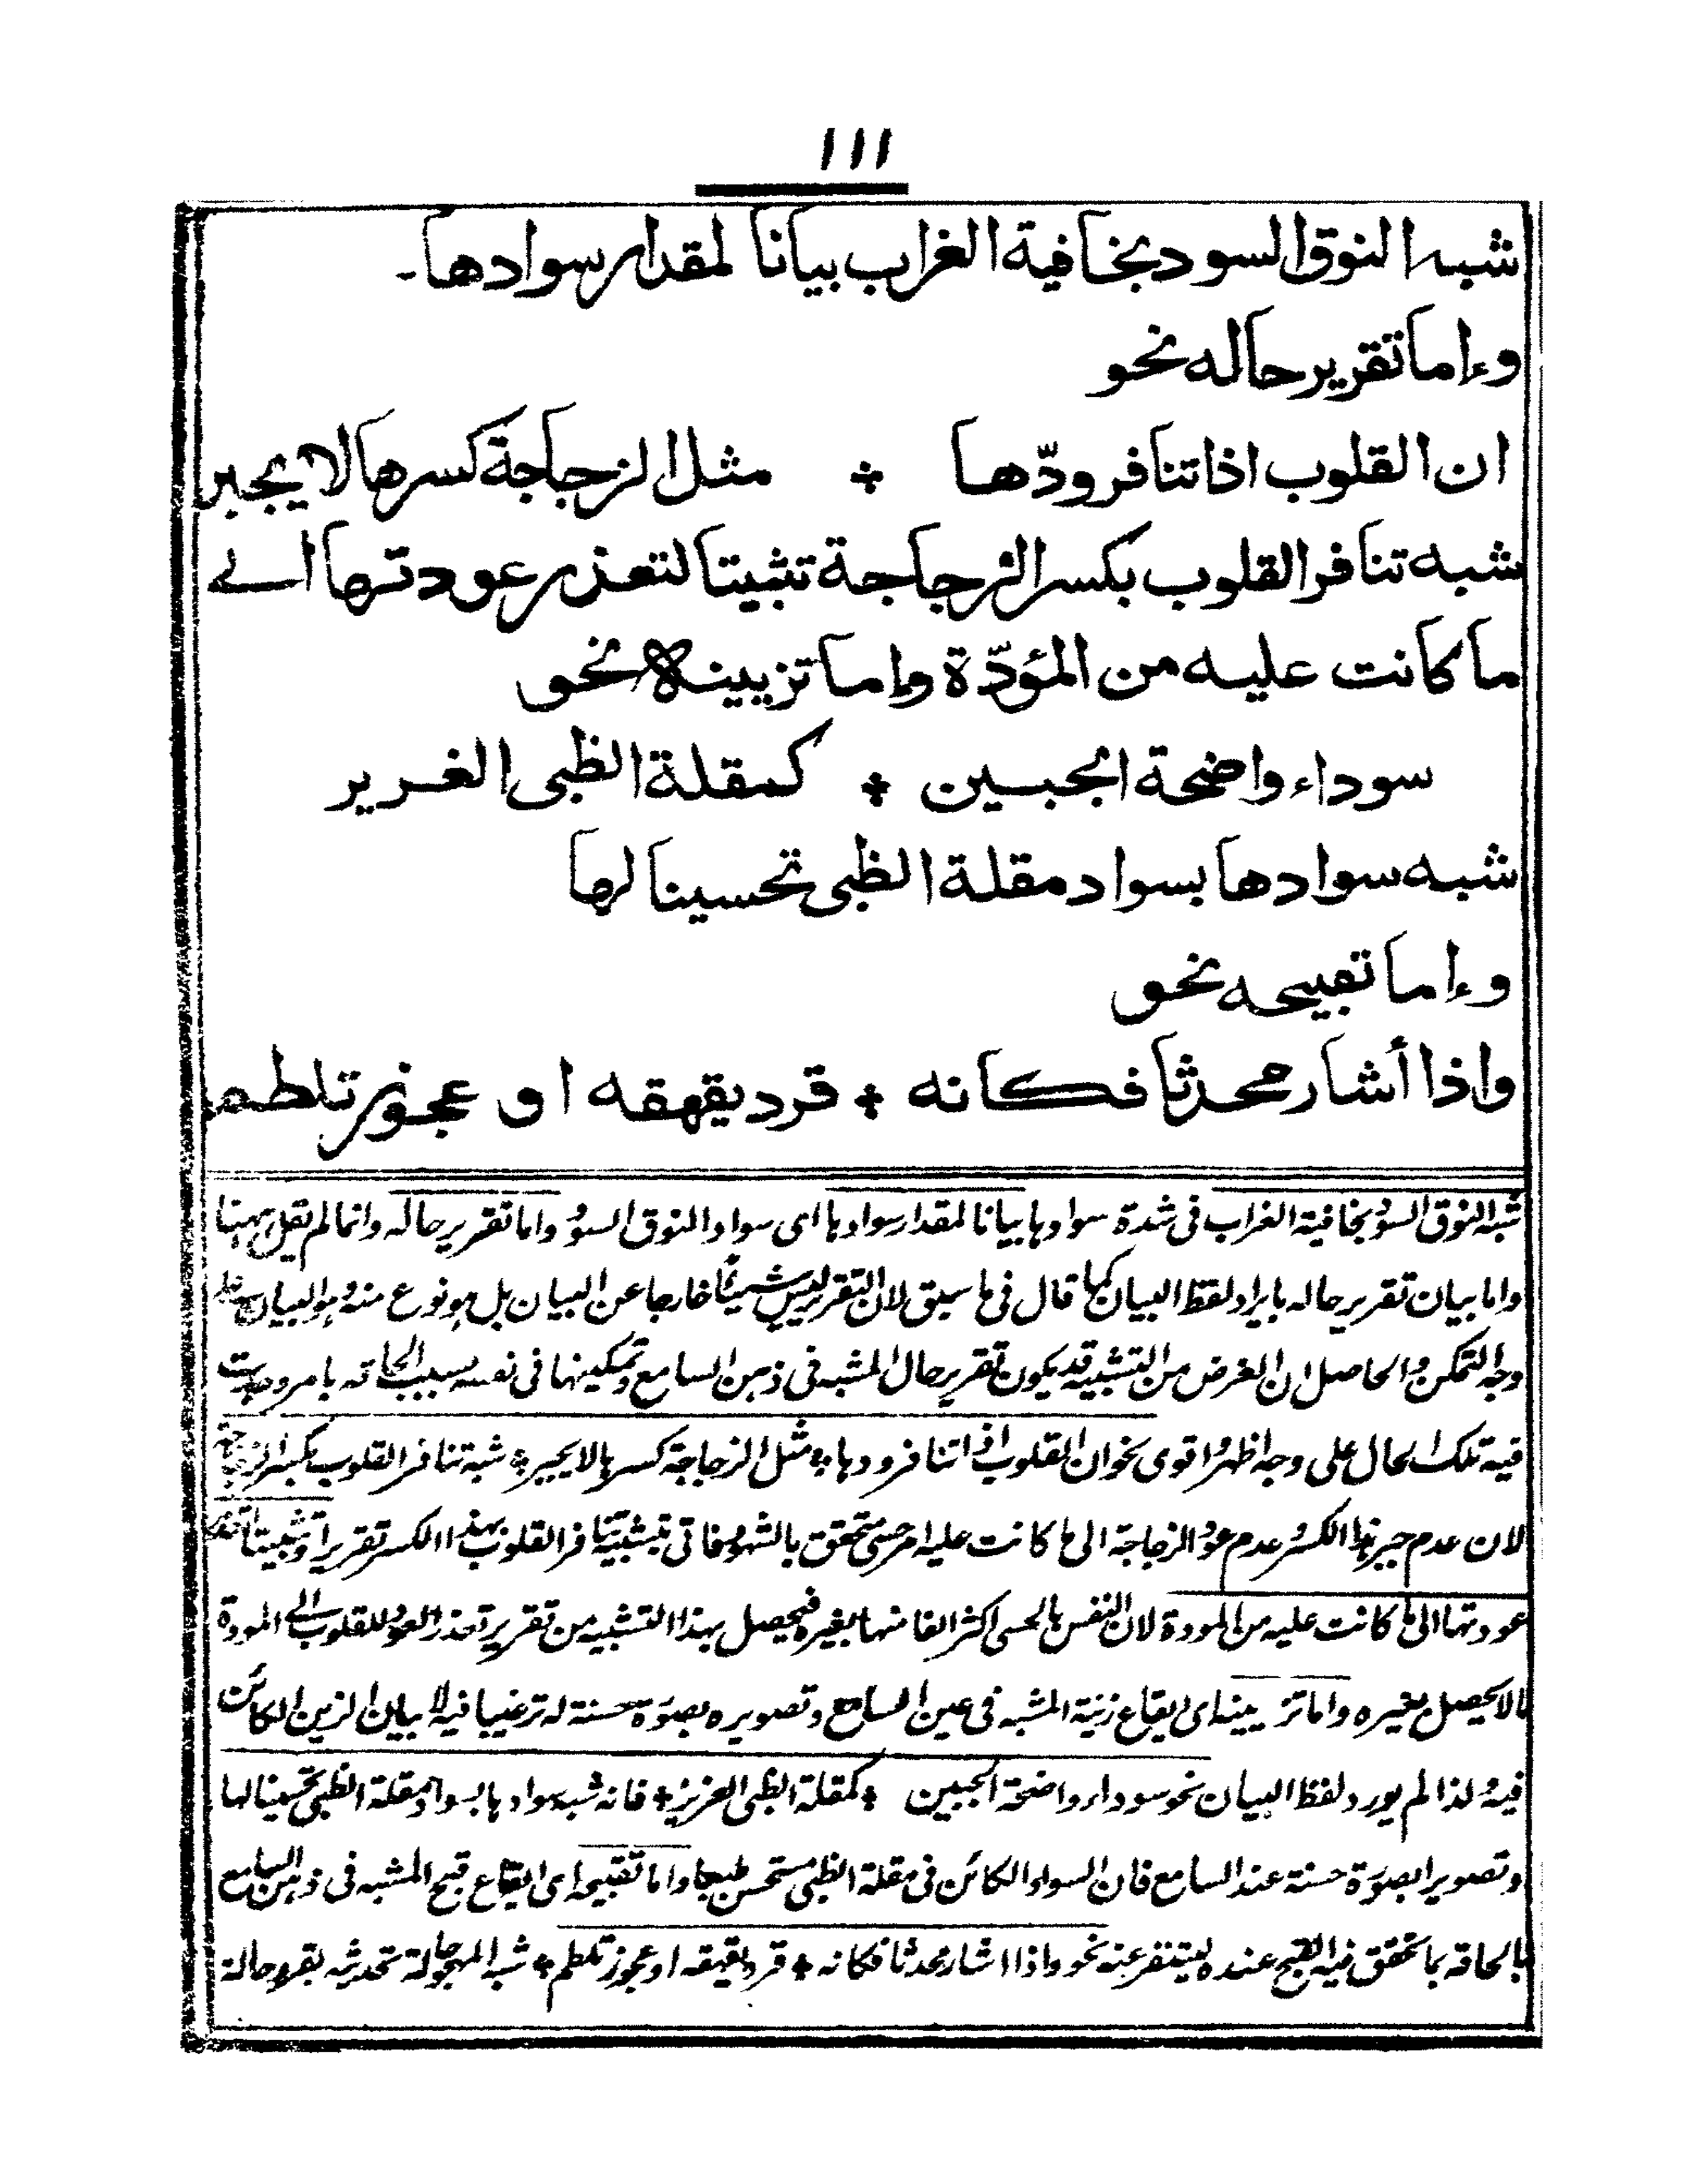 ١١١
شبه النوق السود بخافية الغراب بيانا لمقدار سوادها۔
وإما تقرير حاله نحو
ان القلوب اذا تنافر ودّها ؞ مثل الزجاجة كسرها لا يجبر
شبه تنافر القلوب بكسر الزجاجة تثبيتا لتعذر عودتها الے
ما كانت عليه من المؤدّة وإما تزيينه نحو
سوداء واضحة الجبين ؞ كمقلة الظبى الغرير
شبه سوادها بسواد مقلة الظبى تحسينا لها
وإما تقبيحه نحو
واذا أشار محدثا فكانه ؞ قرد يقهقه او عجوز تلطم
شبه النوق السود بخافية الغراب فى شدة سوادها بيانا لمقدار سوادها اى سواد النوق السود واما تقرير حاله وانما لم يقل ههنا
واما بيان تقرير حاله بايراد لفظ البيان كما قال فى ما سبق لان التقرير ليس شيئا خارجا عن البيان بل هو نوع منه وهو البيان على
وجه التمكن والحاصل ان الغرض من التشبيه قد يكون تقرير حال المشبه فى ذهن السامع وتمكينها فى نفسه بسبب الحاقه بامر وجدت
فيه تلك الحال على وجه اظهر واقوى نحو ان القلوب اذا تنافر ودها ؞ مثل الزجاجة كسرها لا يجبر ؞ شبه تنافر القلوب بكسر الزجاجة
لان عدم جبر هذا الكسر وعدم عود الزجاجة الى ما كانت عليه امر حسى متحقق بالشهود فاتى بتشبيه تنافر القلوب بهذا الكسر تقريرا وتثبيتا لتعذر
عودتها الى ما كانت عليه من المودة لان النفس بالحسى اكثر الفا منها بغيره فيحصل بهذا التشبيه من تقرير تعذر العود للقلوب الى المودة
ما لا يحصل بغيره واما تزيينه اى ايقاع زينة المشبه فى عين السامع وتصويره بصورة حسنة له ترغيبا فيه لا بيان الزين الكائن
فيه ولذا لم يورد لفظ البيان نحو سوداء واضحة الجبين ؞ كمقلة الظبى الغرير ؞ فانه شبه سوادها بسواد مقلة الظبى تحسينا لها
وتصويرا بصورة حسنة عند السامع فان السواد الكائن فى مقلة الظبى مستحسن طبعا واما تقبيحه اى ايقاع قبح المشبه فى ذهن السامع
بالحاقه بما تحقق فيه القبح عنده ليتنفر عنه نحو واذا اشار محدثا فكانه ؞ قرد يقهقه او عجوز تلطم ؞ شبه المهجو حالة تحديثه بقرد حالة